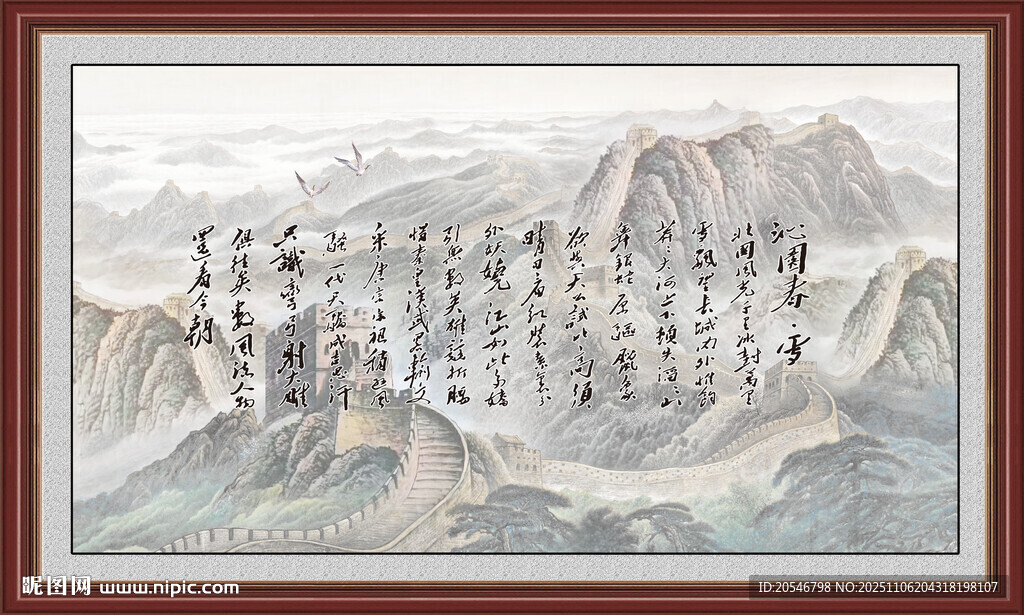 沁園春·雪
北國風光千里冰封萬里
雪飄望長城内外惟餘
莽莽大河上下頓失滔滔山
舞銀蛇原馳蠟象
欲與天公試比高須
晴日看紅裝素裹分
外妖嬈江山如此多嬌
引無數英雄競折腰
惜秦皇漢武略輸文
采唐宗宋祖稍遜風
騷一代天驕成吉思汗
只識彎弓射大雕
俱往矣數風流人物
還看今朝
昵图网 www.nipic.com
ID:20546798 NO:20251106204318198107